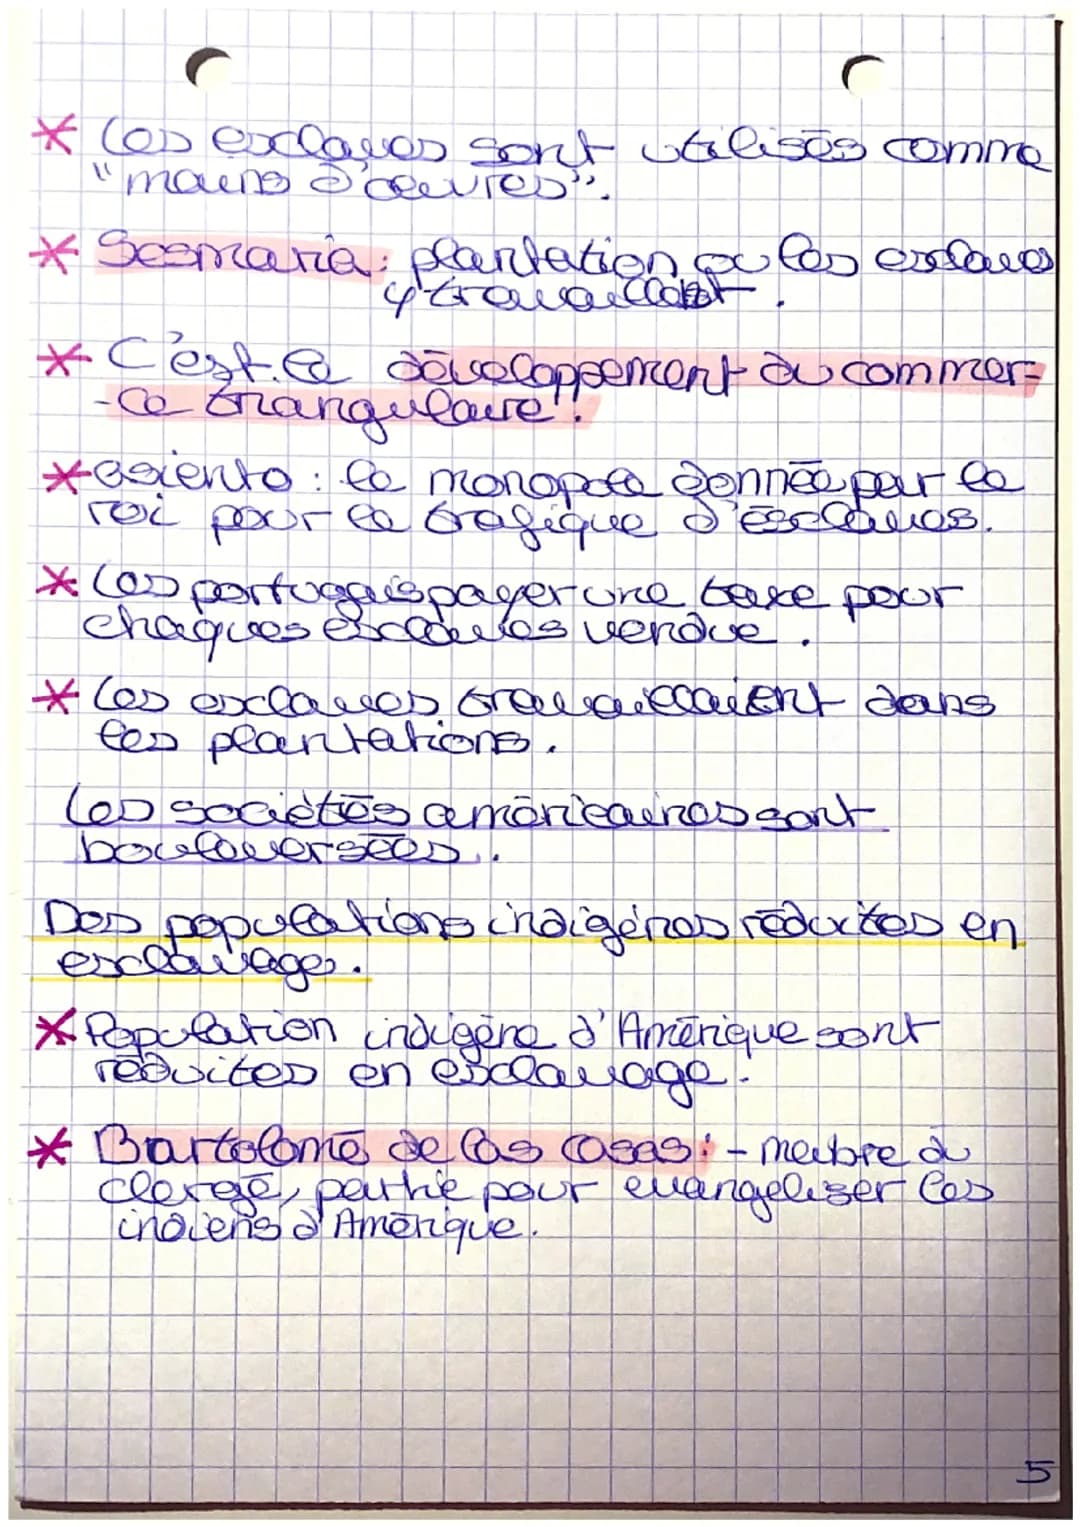 * Les esclaves sont utilisés comme
"mains d'œuvres".
* Sesmaria: plantation ou les esclaves
y travaillent.
* C'est le développement du commer-
-ce triangulaire.
* asiento : le monopole donnée par le
roi pour le trafique d'ésclaves.
* Les portugais payer une taxe pour
chaques esclaves vendue.
* Les esclaves travaillaient dans
les plantations.
Les sociétés américaines sont
bouleversées.
Des populations indigénes réduites en
esclavages.
* Population indigéne d'Amérique sont
réduites en esclavage.
* Bartolomé de Las Casas: - mebre du
clergé, partie pour evangeliser les
indiens d'Amérique.
5